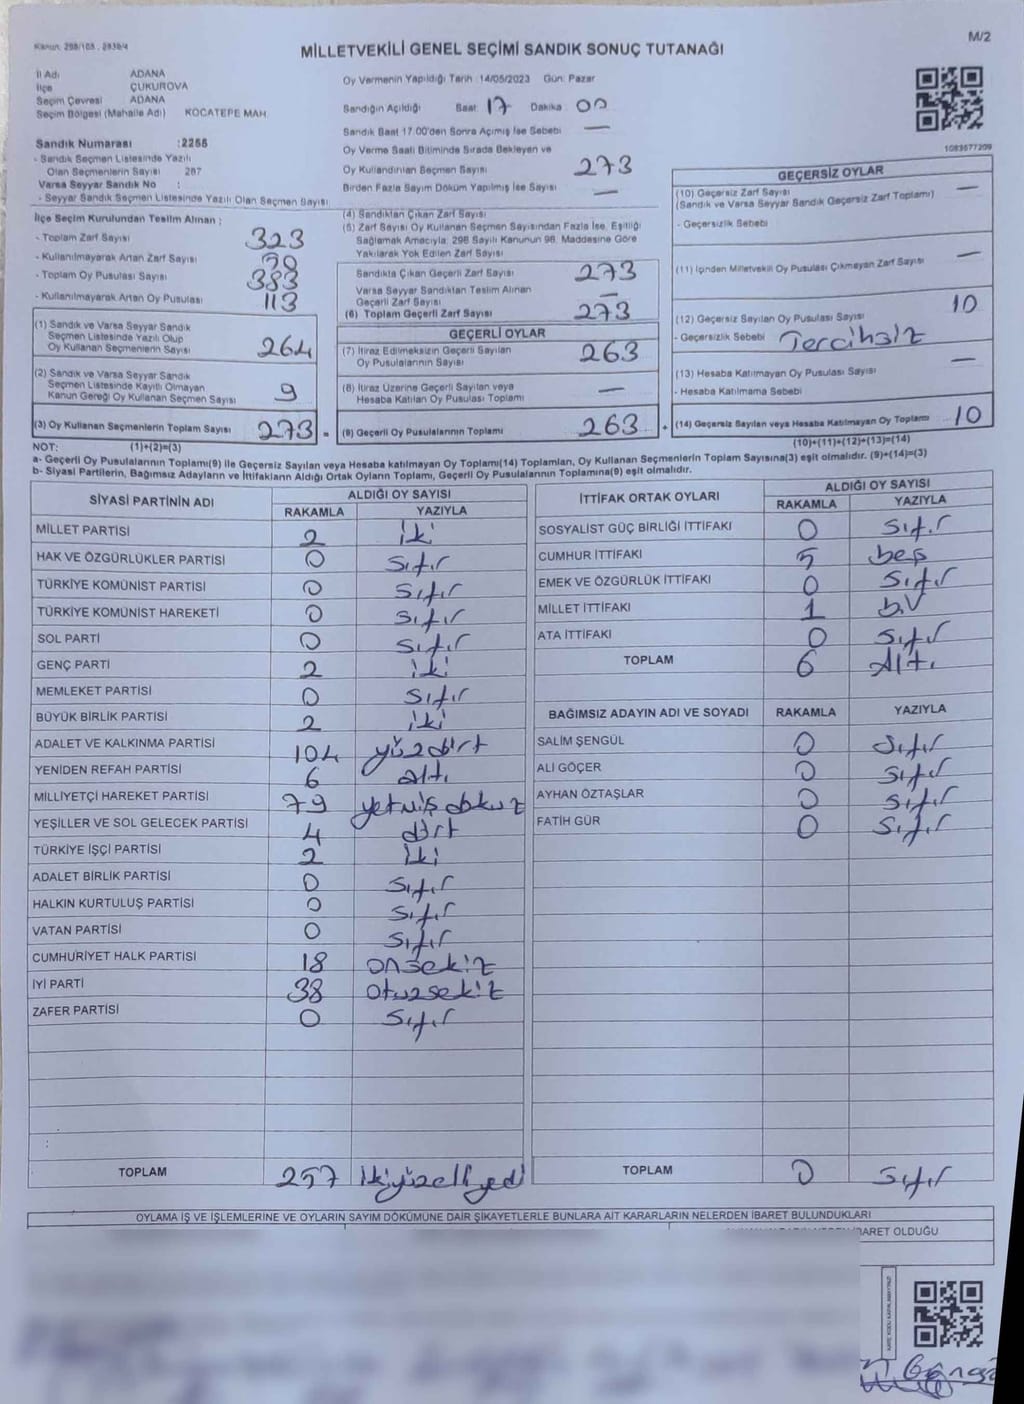 Kanun. 298/105 , 2839/4
M/2
MİLLETVEKİLİ GENEL SEÇİMİ SANDIK SONUÇ TUTANAĞI
İl Adı ADANA
İlçe ÇUKUROVA
Seçim Çevresi ADANA
Seçim Bölgesi (Mahalle Adı) KOCATEPE MAH
Sandık Numarası :2256
- Sandık Seçmen Listesinde Yazılı
Olan Seçmenlerin Sayısı 287
Varsa Seyyar Sandık No :
- Seyyar Sandık Seçmen Listesinde Yazılı Olan Seçmen Sayısı
İlçe Seçim Kurulundan Teslim Alınan ;
- Toplam Zarf Sayısı 323
- Kullanılmayarak Artan Zarf Sayısı
- Toplam Oy Pusulası Sayısı 383
- Kullanılmayarak Artan Oy Pusulası 113
(1) Sandık ve Varsa Seyyar Sandık
Seçmen Listesinde Yazılı Olup
Oy Kullanan Seçmenlerin Sayısı 264
(2) Sandık ve Varsa Seyyar Sandık
Seçmen Listesinde Kayıtlı Olmayan
Kanun Gereği Oy Kullanan Seçmen Sayısı 9
(3) Oy Kullanan Seçmenlerin Toplam Sayısı 273 =
Oy Vermenin Yapıldığı Tarih :14/05/2023 Gün: Pazar
Sandığın Açıldığı Saat 17 Dakika 00
Sandık Saat 17.00'den Sonra Açımış İse Sebebi —
Oy Verme Saati Bitiminde Sırada Bekleyen ve
Oy Kullandırılan Seçmen Sayısı 273
Birden Fazla Sayım Döküm Yapılmış İse Sayısı —
(4) Sandıktan Çıkan Zarf Sayısı
(5) Zarf Sayısı Oy Kullanan Seçmen Sayısından Fazla İse, Eşitliği
Sağlamak Amacıyla; 298 Sayılı Kanunun 98. Maddesine Göre
Yakılarak Yok Edilen Zarf Sayısı
Sandıkta Çıkan Geçerli Zarf Sayısı 273
Varsa Seyyar Sandıktan Teslim Alınan
Geçerli Zarf Sayısı —
(6) Toplam Geçerli Zarf Sayısı 273
GEÇERLİ OYLAR
(7) İtiraz Edilmeksizin Geçerli Sayılan
Oy Pusulalarının Sayısı 263
(8) İtiraz Üzerine Geçerli Sayılan veya
Hesaba Katılan Oy Pusulası Toplamı —
(9) Geçerli Oy Pusulalarının Toplamı 263 +
1083677209
GEÇERSİZ OYLAR
(10) Geçersiz Zarf Sayısı
(Sandık ve Varsa Seyyar Sandık Geçersiz Zarf Toplamı) —
- Geçersizlik Sebebi
(11) İçinden Milletvekili Oy Pusulası Çıkmayan Zarf Sayısı —
(12) Geçersiz Sayılan Oy Pusulası Sayısı 10
- Geçersizlik Sebebi Tercihsiz
(13) Hesaba Katılmayan Oy Pusulası Sayısı —
- Hesaba Katılmama Sebebi
(14) Geçersiz Sayılan veya Hesaba Katılmayan Oy Toplamı 10
NOT: (1)+(2)=(3)
(10)+(11)+(12)+(13)=(14)
a- Geçerli Oy Pusulalarının Toplamı(9) ile Geçersiz Sayılan veya Hesaba katılmayan Oy Toplamı(14) Toplamları, Oy Kullanan Seçmenlerin Toplam Sayısına(3) eşit olmalıdır. (9)+(14)=(3)
b- Siyasi Partilerin, Bağımsız Adayların ve İttifakların Aldığı Ortak Oyların Toplamı, Geçerli Oy Pusulalarının Toplamına(9) eşit olmalıdır.
SİYASİ PARTİNİN ADI ALDIĞI OY SAYISI
RAKAMLA YAZIYLA
MİLLET PARTİSİ 2 iki
HAK VE ÖZGÜRLÜKLER PARTİSİ 0 sıfır
TÜRKİYE KOMÜNİST PARTİSİ 0 sıfır
TÜRKİYE KOMÜNİST HAREKETİ 0 sıfır
SOL PARTİ 0 sıfır
GENÇ PARTİ 2 iki
MEMLEKET PARTİSİ 0 sıfır
BÜYÜK BİRLİK PARTİSİ 2 iki
ADALET VE KALKINMA PARTİSİ 104 yüzdört
YENİDEN REFAH PARTİSİ 6 altı
MİLLİYETÇİ HAREKET PARTİSİ 79 yetmiş dokuz
YEŞİLLER VE SOL GELECEK PARTİSİ 4 dört
TÜRKİYE İŞÇİ PARTİSİ 2 iki
ADALET BİRLİK PARTİSİ 0 sıfır
HALKIN KURTULUŞ PARTİSİ 0 sıfır
VATAN PARTİSİ 0 sıfır
CUMHURİYET HALK PARTİSİ 18 onsekiz
İYİ PARTİ 38 otuzsekiz
ZAFER PARTİSİ 0 sıfır
TOPLAM 257 ikiyüzelliyedi
İTTİFAK ORTAK OYLARI ALDIĞI OY SAYISI
RAKAMLA YAZIYLA
SOSYALİST GÜÇ BİRLİĞİ İTTİFAKI 0 sıfır
CUMHUR İTTİFAKI 5 beş
EMEK VE ÖZGÜRLÜK İTTİFAKI 0 sıfır
MİLLET İTTİFAKI 1 bir
ATA İTTİFAKI 0 sıfır
TOPLAM 6 Altı
BAĞIMSIZ ADAYIN ADI VE SOYADI RAKAMLA YAZIYLA
SALİM ŞENGÜL 0 sıfır
ALİ GÖÇER 0 sıfır
AYHAN ÖZTAŞLAR 0 sıfır
FATİH GÜR 0 sıfır
TOPLAM 0 sıfır
OYLAMA İŞ VE İŞLEMLERİNE VE OYLARIN SAYIM DÖKÜMÜNE DAİR ŞİKAYETLERLE BUNLARA AİT KARARLARIN NELERDEN İBARET BULUNDUKLARI
OLDUĞU